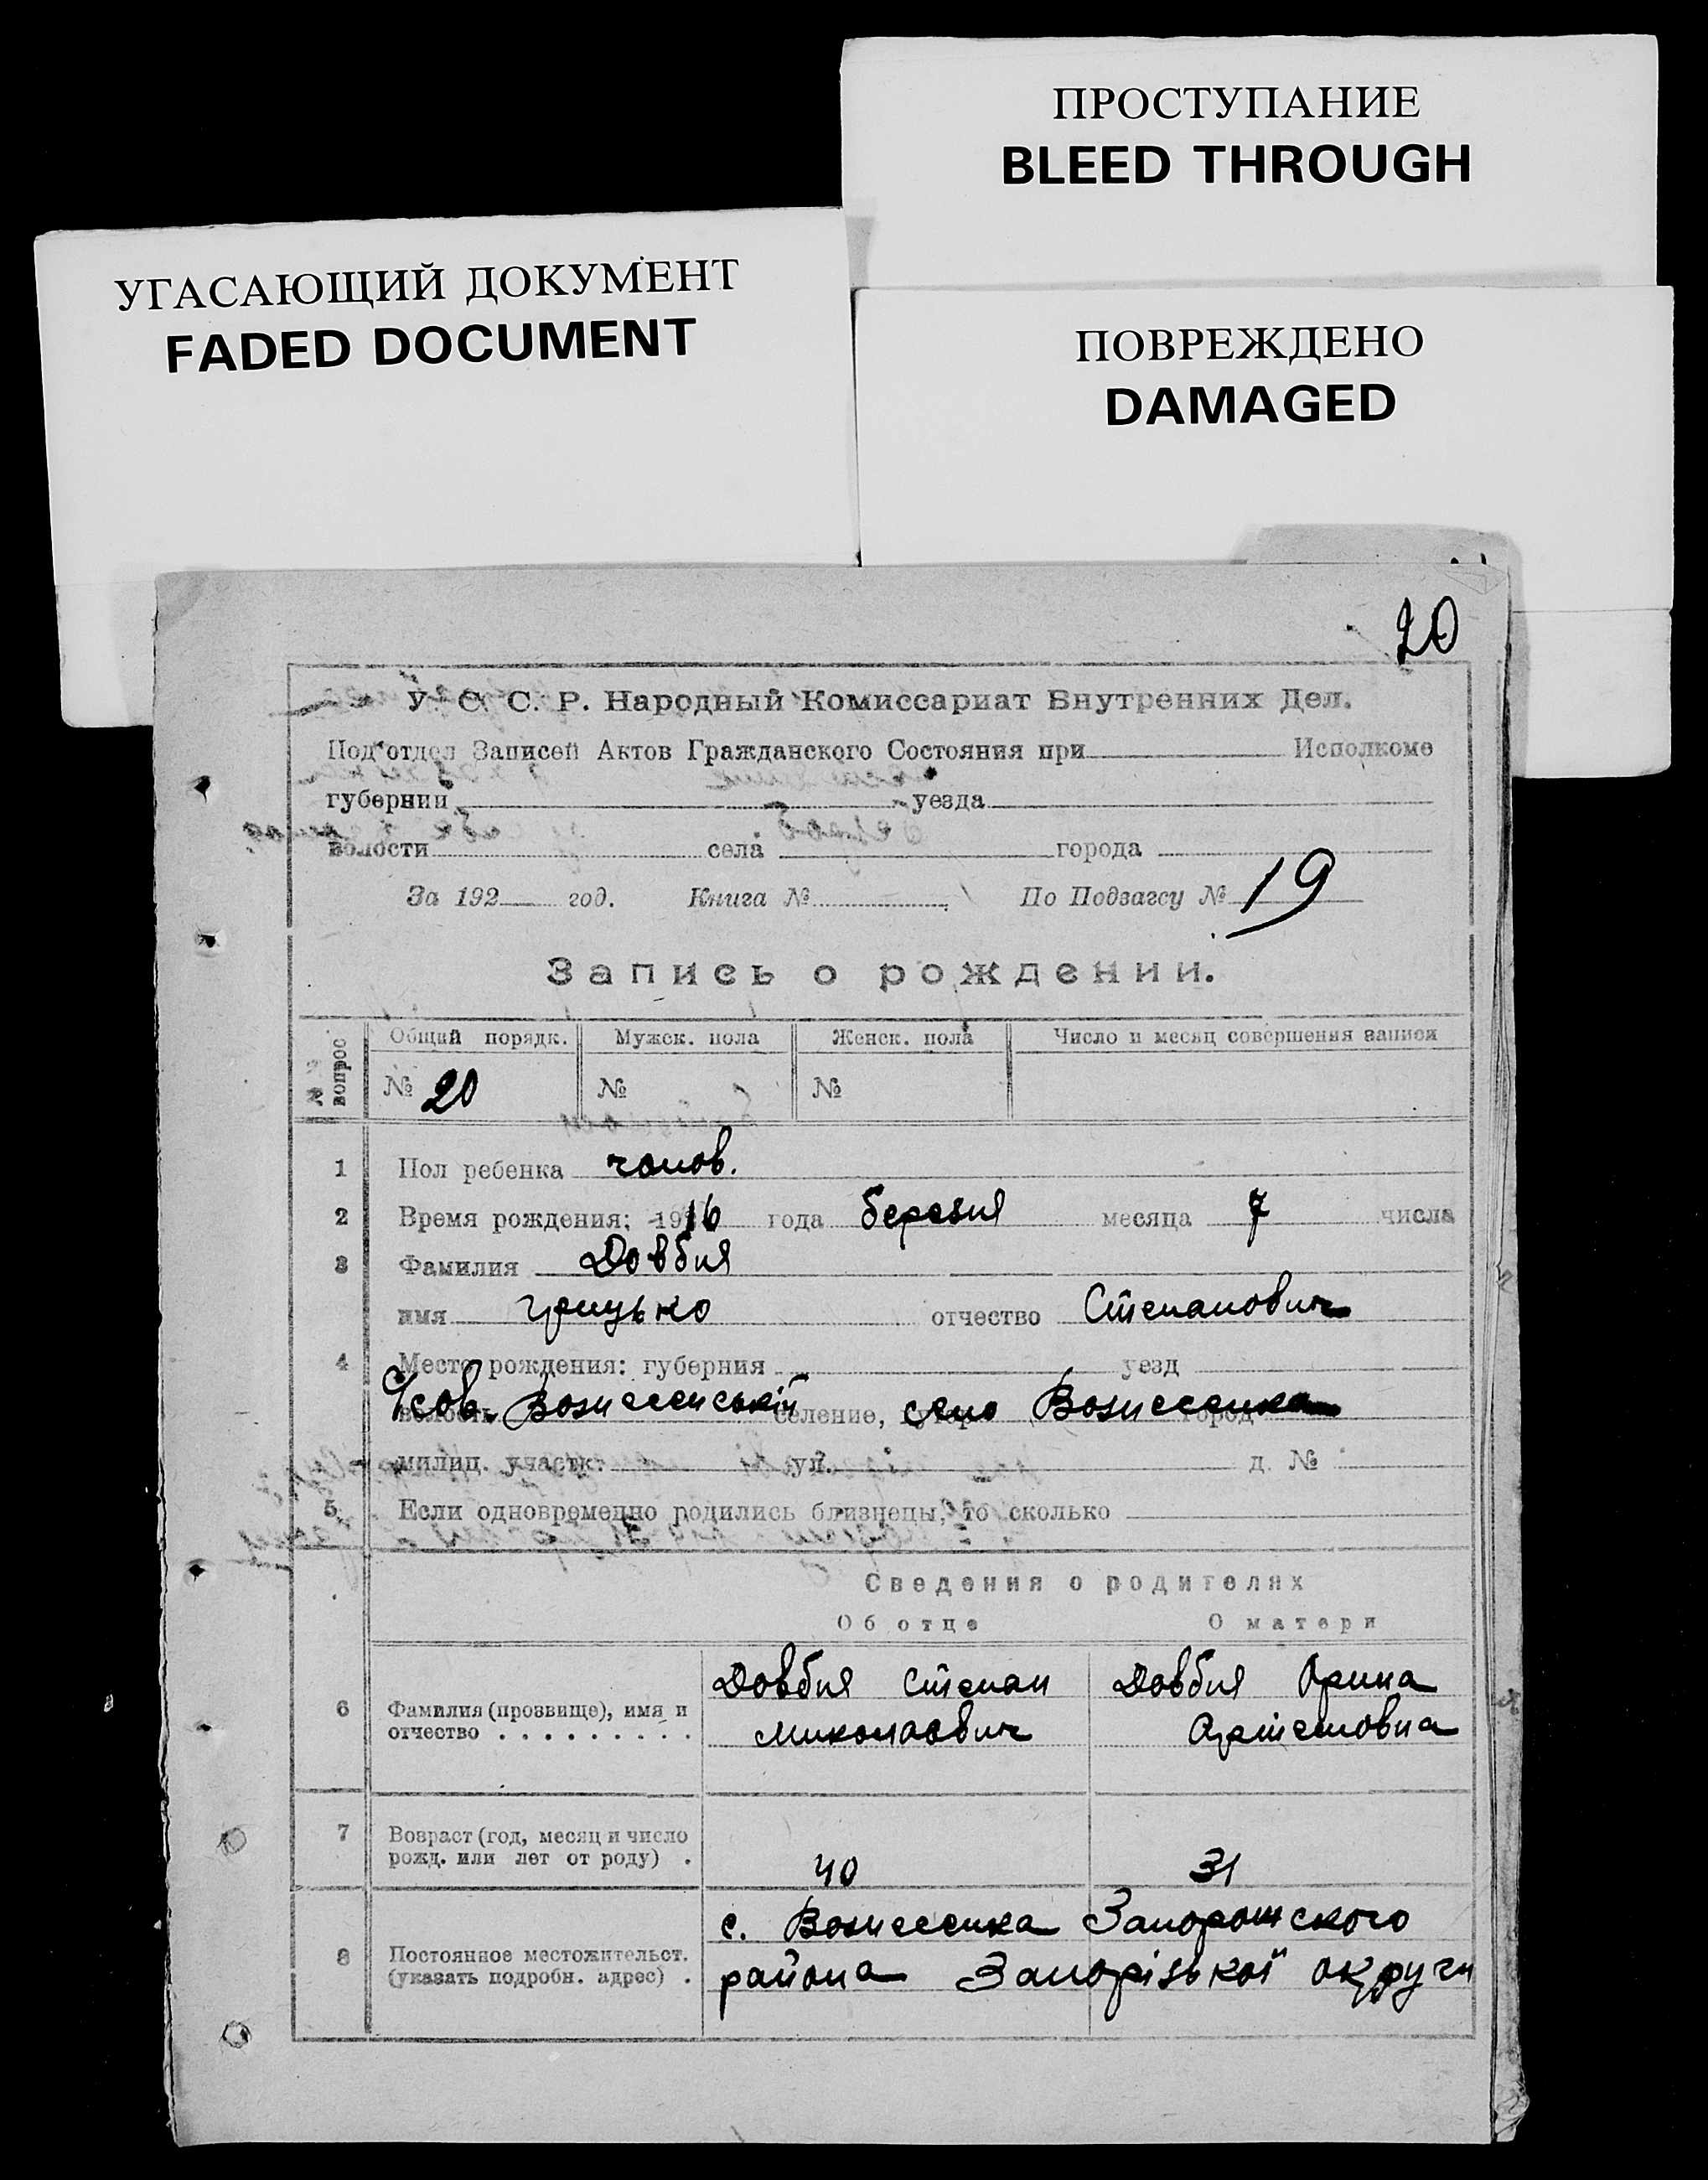 ПРОСТУПАНИЕ
BLEED THROUGH
УГАСАЮЩИЙ ДОКУМЕНТ
FADED DOCUMENT
ПОВРЕЖДЕНО
DAMAGED
20
У. С. С. Р. Народный Комиссариат Внутренних Дел.
Под'отдел Записей Актов Гражданского Состояния при Исполкоме
губернии уезда
волости села города
За 192 год. Книга № По Подзагсу № 19
Запись о рождении.
№ вопрос Общий порядк. Мужск. пола Женск. пола Число и месяц совершения записи
№ 20 № №
1 Пол ребенка чолов.
2 Время рождения: 1916 года березня месяца 7 числа
3 Фамилия Довбня
имя Грицько отчество Степанович
4 Место рождения: губерния уезд
волость Вознесенській селение, село Вознесенка город
милиц. участк. ул. д. №
5 Если одновременно родились близнецы, то сколько
Сведения о родителях
Об отце О матери
6 Фамилия (прозвище), имя и отчество Довбня Степан Довбня Орина
Миколаович Артемовна
7 Возраст (год, месяц и число рожд. или лет от роду) 40 31
8 Постоянное местожительст. (указать подробн. адрес) с. Вознесенка Запорожского
района Запорізької округи